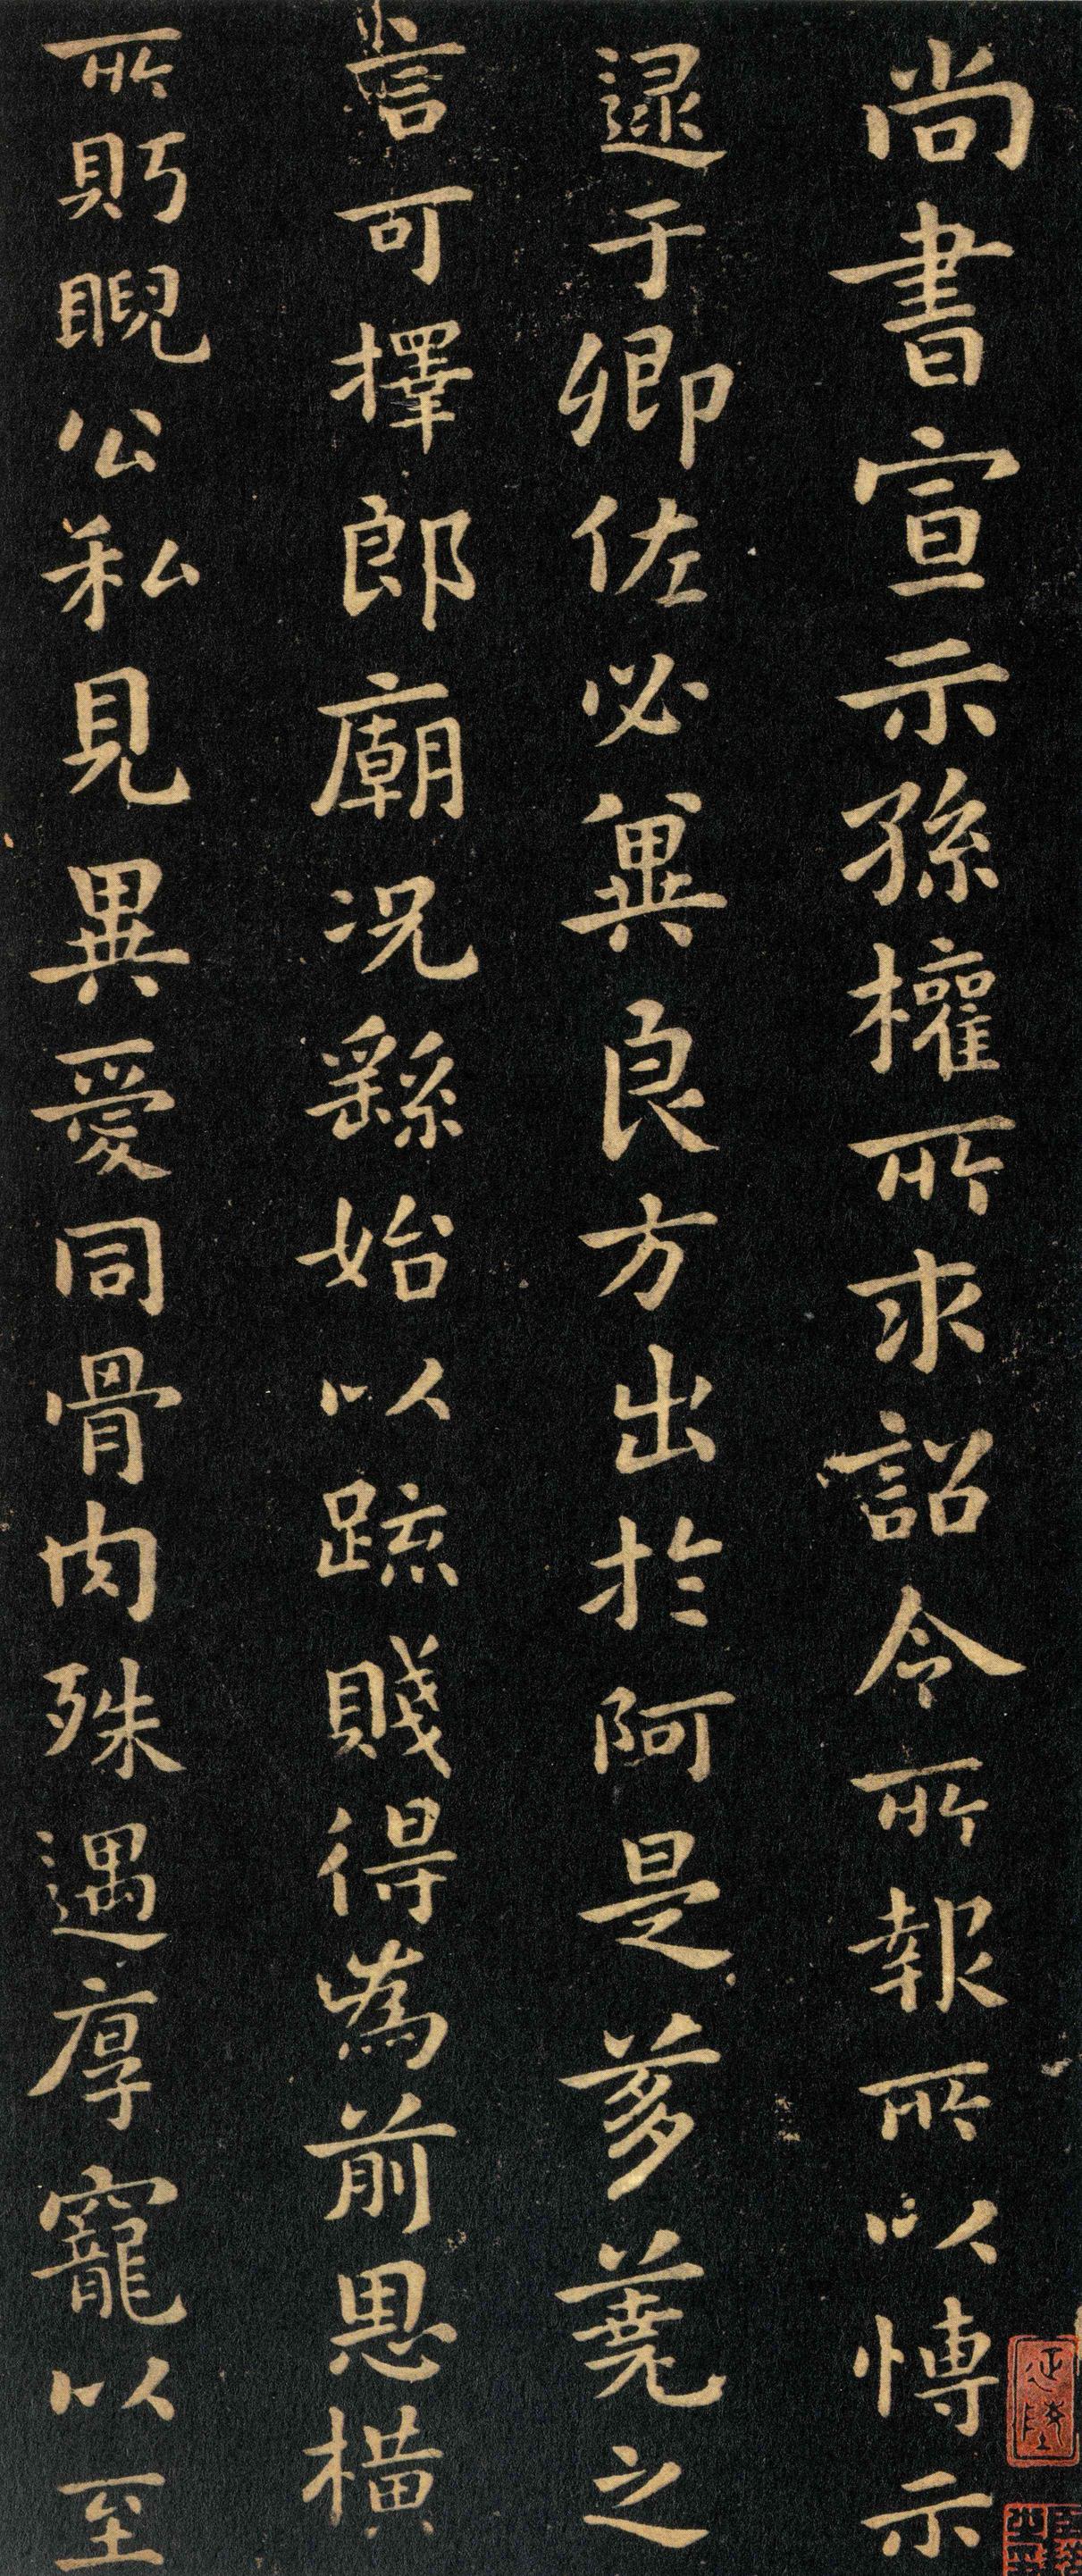 尚書宣示孫權所求詔令所報所以博示
逯于卿佐必冀良方出於阿是芻蕘之
言可擇郎廟況繇始以疏賤得為前恩橫
所眄睨公私見異愛同骨肉殊遇厚寵以至